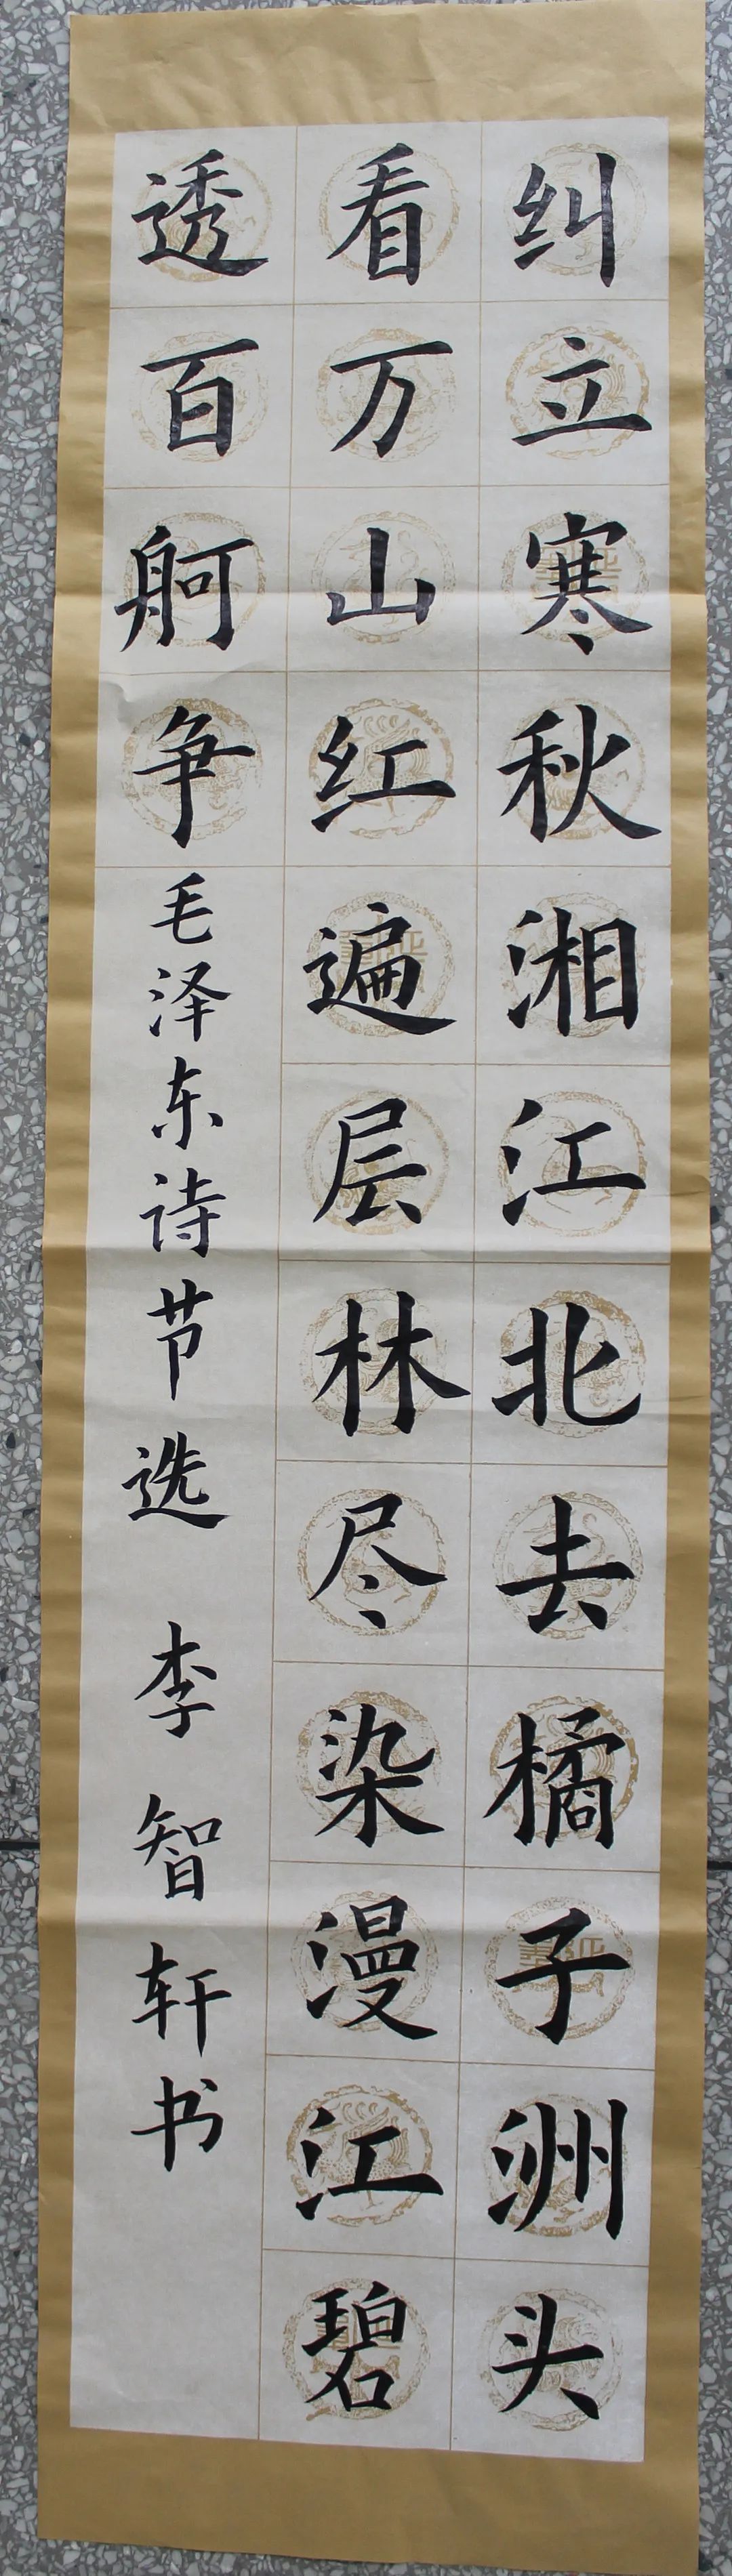 纠立寒秋湘江北去橘子洲头
看万山红遍层林尽染漫江碧
透百舸争毛泽东诗节选 李智轩书